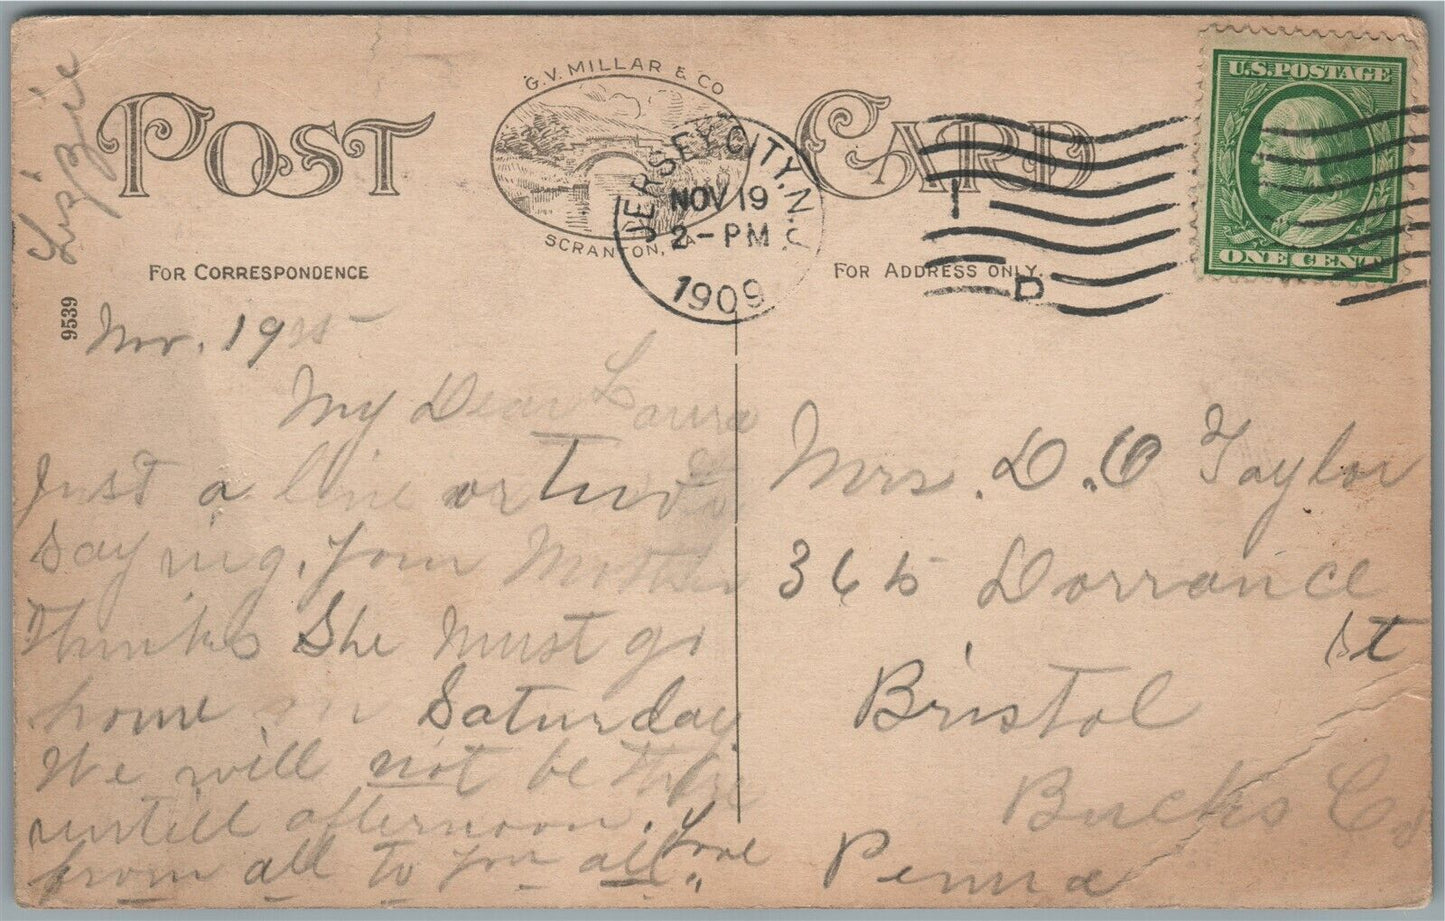 Lizzie
POST CARD
G. V. MILLAR & CO
SCRANTON, PA
JERSEY CITY, N.J.
NOV 19
2-PM
1909
1
D
U.S. POSTAGE
ONE CENT
FOR CORRESPONDENCE
FOR ADDRESS ONLY.
9539
Nov. 19
My Dear Laura
Just a line or two
saying, your Mother
Thinks She Must go
home on Saturday
We will not be there
untill afternoon. Love
from all to you all.
Mrs. D. O Taylor
365 Dorrance
St
Bristol
Bucks Co
Penna